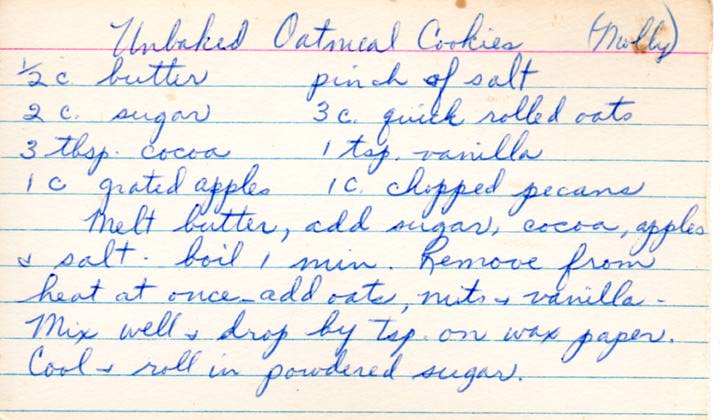 Unbaked Oatmeal Cookies (Molly)
½ c. butter pinch of salt
2 c. sugar 3 c. quick rolled oats
3 tbsp. cocoa 1 tsp. vanilla
1 c grated apples 1 c. chopped pecans
Melt butter, add sugar, cocoa, apples
& salt. boil 1 min. Remove from
heat at once - add oats, nuts & vanilla -
Mix well & drop by tsp. on wax paper.
Cool & roll in powdered sugar.